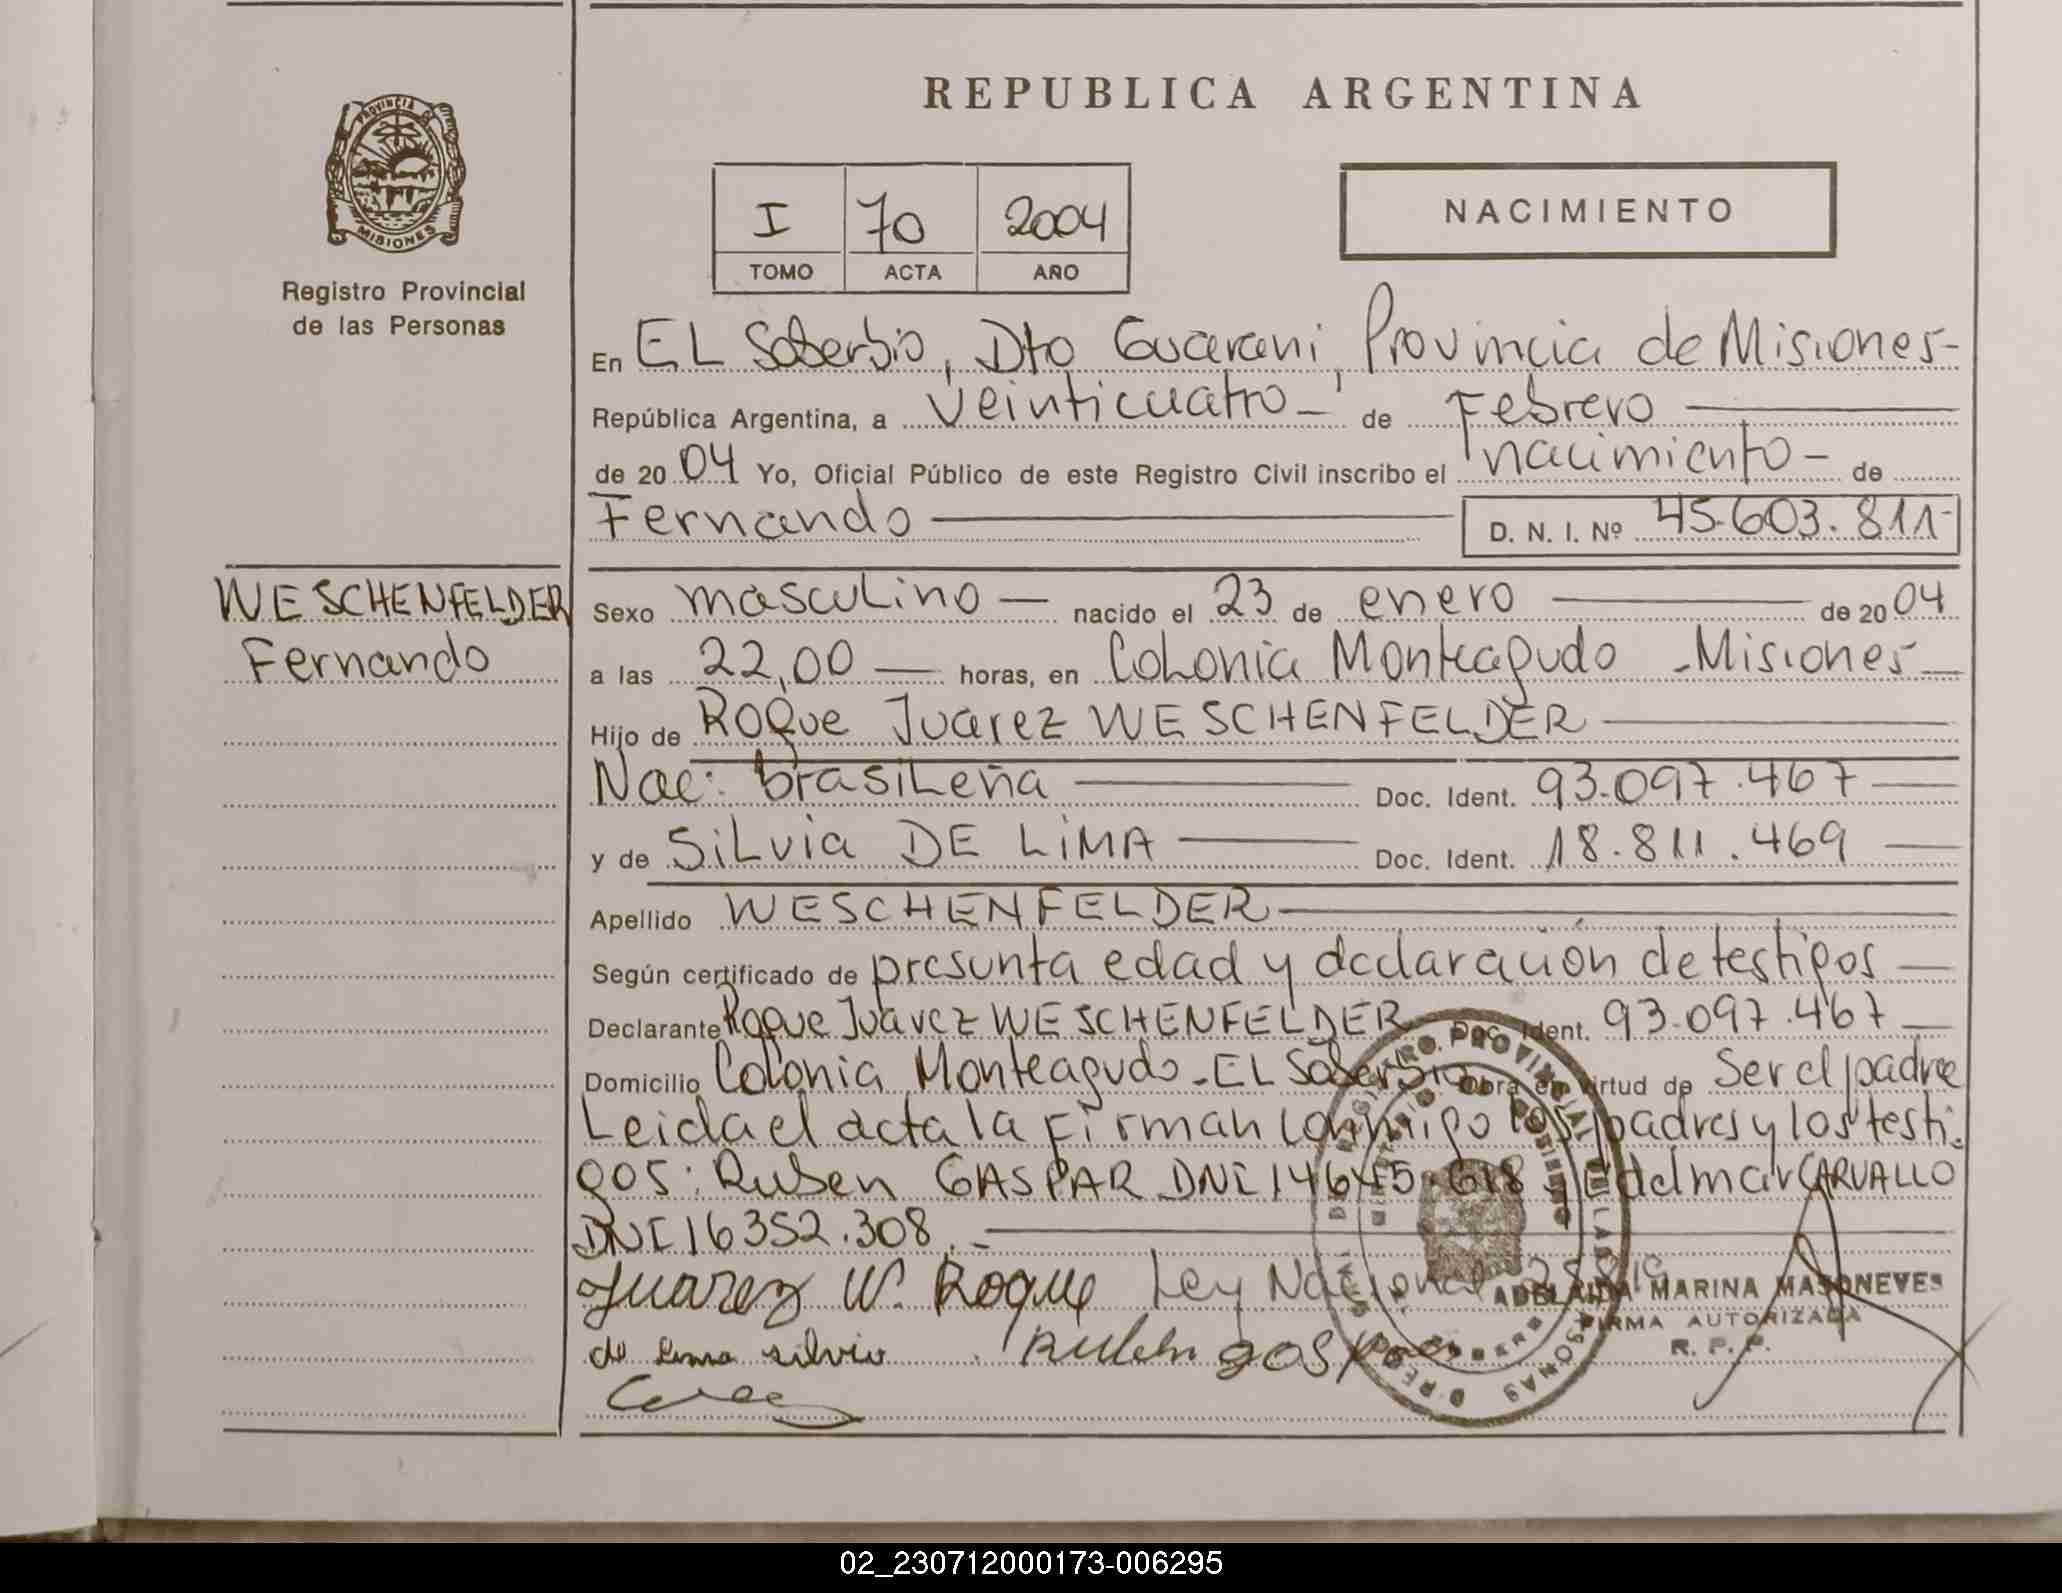 REPUBLICA ARGENTINA
PROVINCIA DE MISIONES
Registro Provincial
de las Personas
I 70 2004
TOMO ACTA AÑO
NACIMIENTO
En EL Soberbio, Dto Guarani, Provincia de Misiones-
República Argentina, a veinticuatro- de Febrero
de 2004 Yo, Oficial Público de este Registro Civil inscribo el nacimiento- de
Fernando D. N. I. Nº 45.603.811-
WESCHENFELDER
Fernando
Sexo masculino — nacido el 23 de enero — de 2004
a las 22,00 — horas, en Colonia Monteagudo - Misiones —
Hijo de Roque Juarez WESCHENFELDER
Nac: brasileña — Doc. Ident. 93.097.467 —
y de Silvia DE LIMA — Doc. Ident. 18.811.469 —
Apellido WESCHENFELDER
Según certificado de presunta edad y declaración de testigos —
Declarante Roque Juarez WESCHENFELDER Doc. Ident. 93.097.467 —
Domicilio Colonia Monteagudo - EL Soberbio Obra en virtud de Ser el padre
Leida el acta la Firman conmigo los padres y los testi-
gos: Ruben GASPAR DNI 14645.618 y Edelmar CARVALLO
DNI 16352.308.-
Juarez W. Roque Ley Nacional
ADELAIDA MARINA MASONEVES
FIRMA AUTORIZADA
R. P. P.
de lima silvia Ruben gaspar
02_230712000173-006295